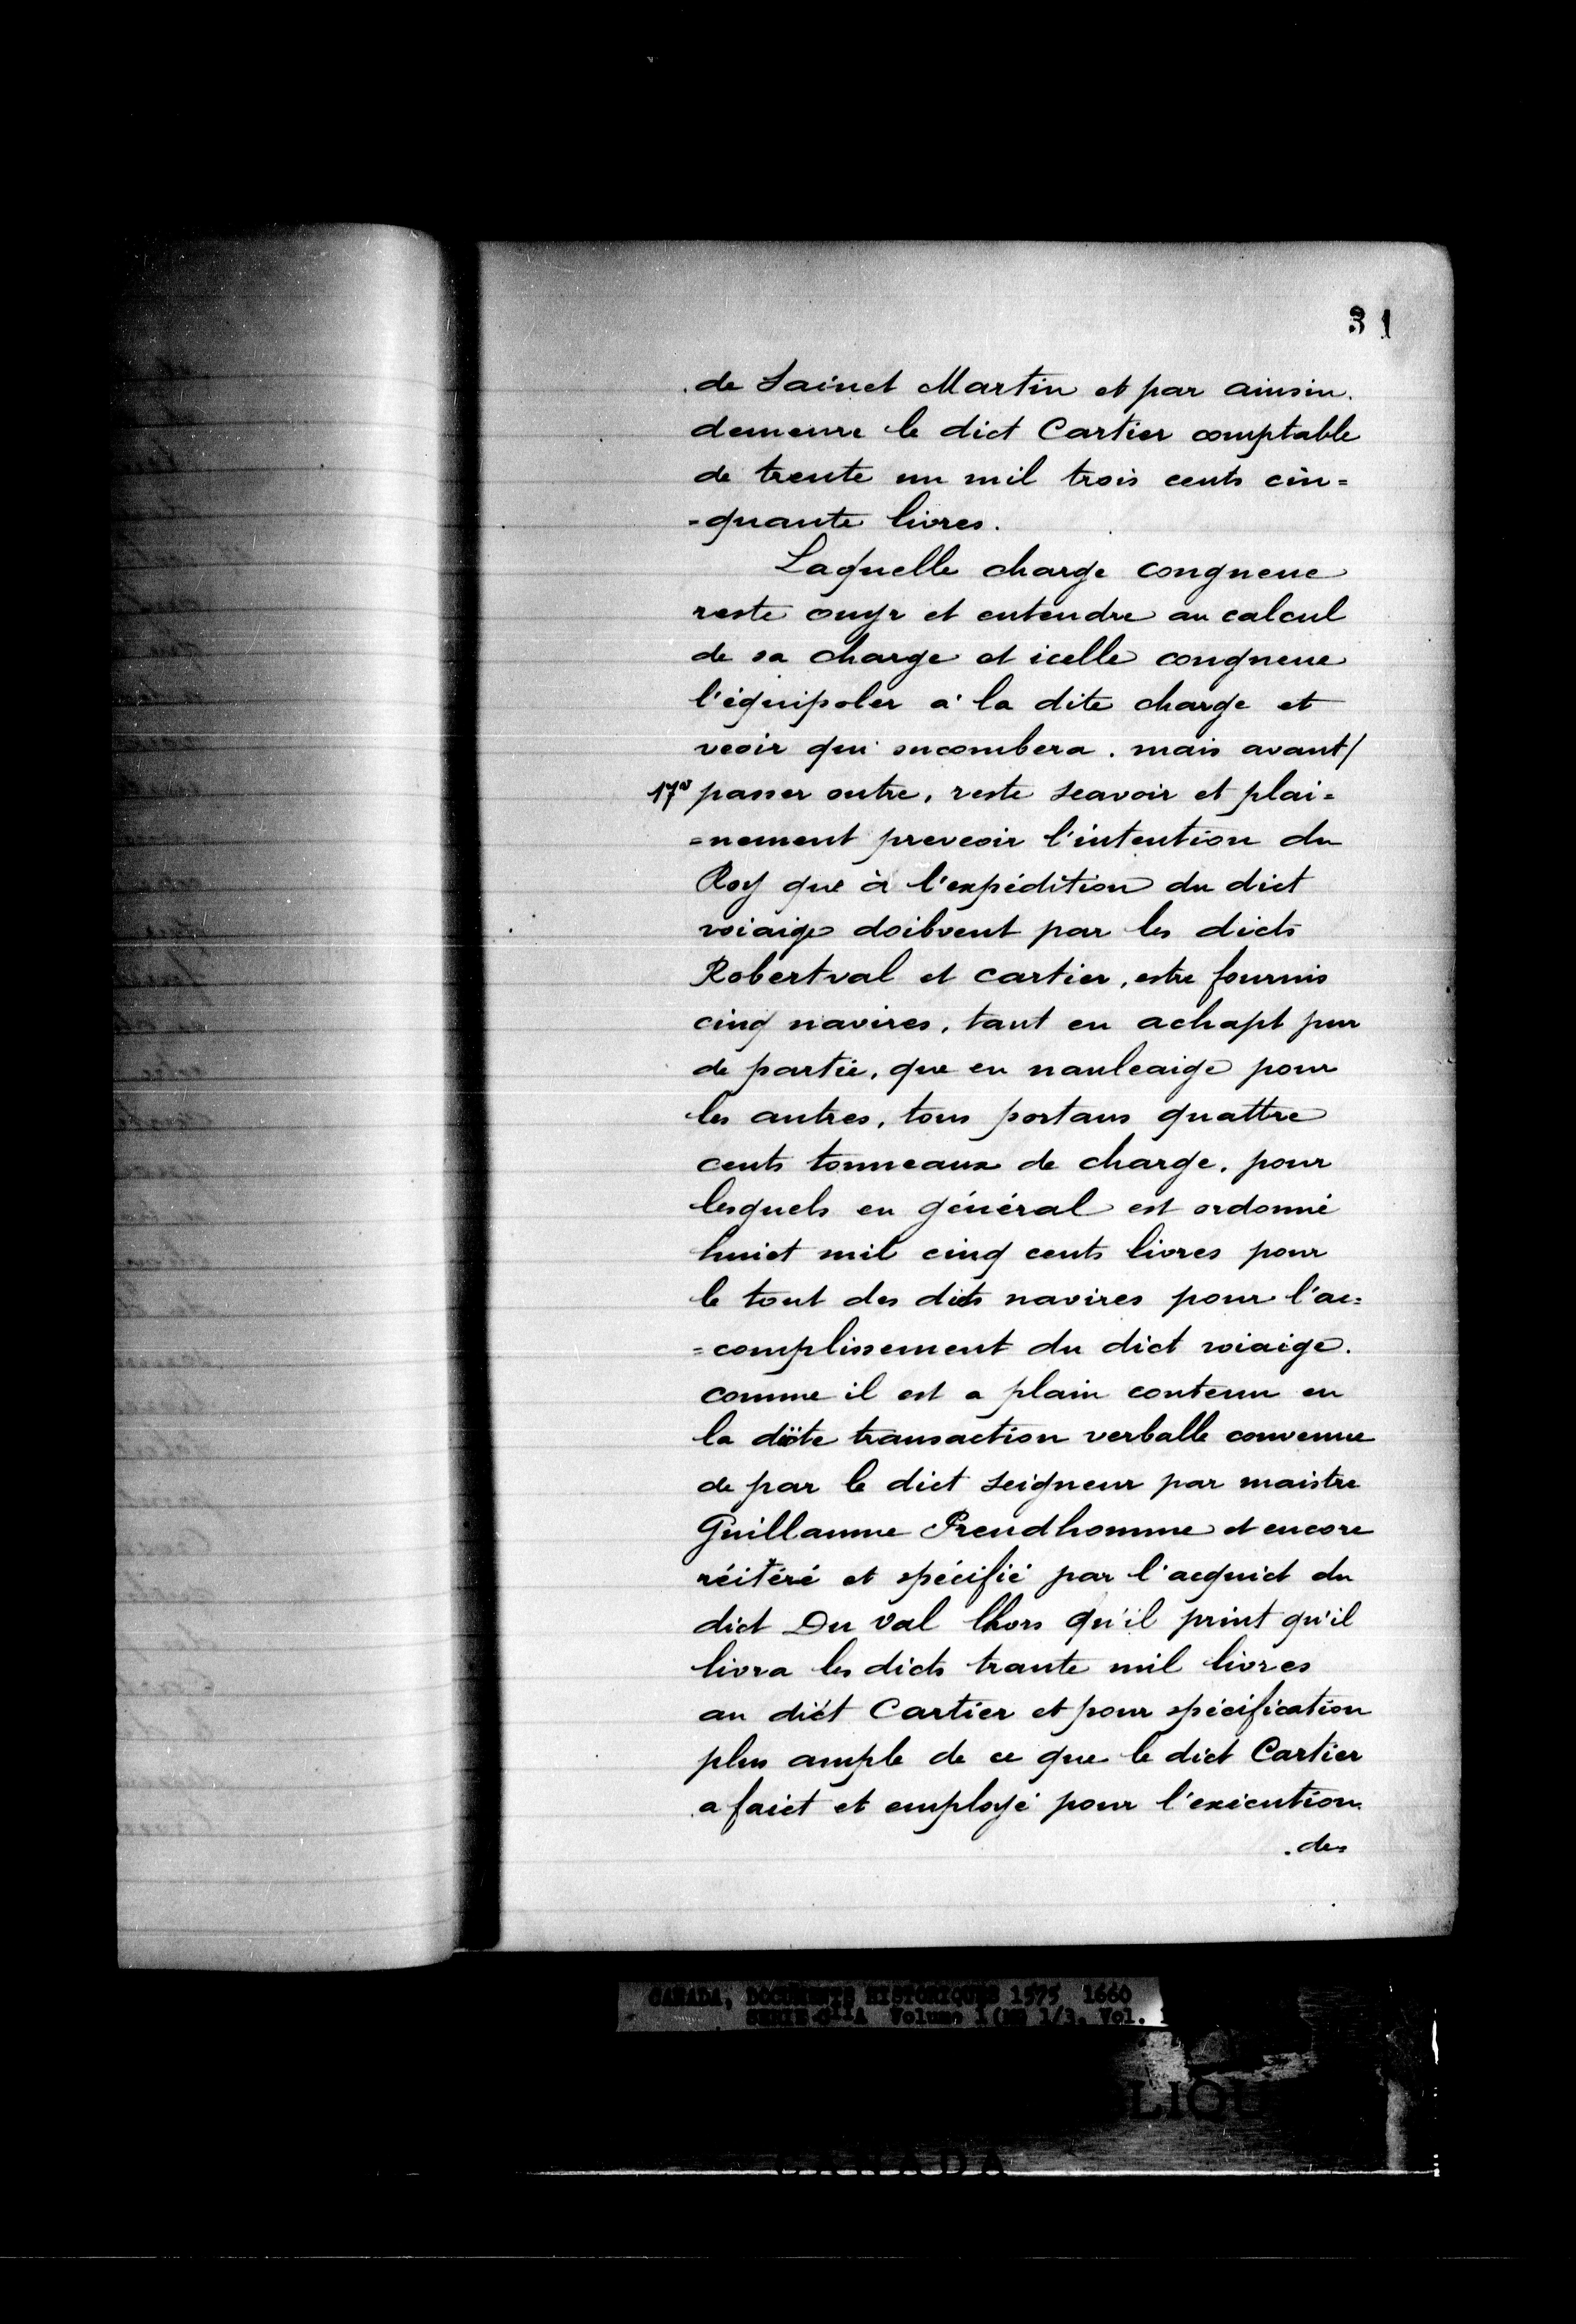 31
de Sainct Martin et par ainsin
demeure le dict Cartier comptable
de trente un mil trois cents cin=
=quante livres.
Laquelle charge congneue
reste ouyr et entendre au calcul
de sa charge et icelle congneue
l'équipoler à la dite charge et
veoir qui sucombera. mais avant/
17v passer outre, reste sçavoir et plai=
=nement preveoir l'intention du
Roy que à l'expédition du dict
voiaige doibvent par les dicts
Robertval et Cartier, estre fournis
cinq navires, tant en achapt pur
de partie, que en nauleaige pour
les autres, tous portans quattre
cents tonneaux de charge, pour
lesquels en général est ordonné
huict mil cinq cents livres pour
le tout des dicts navires pour l'ac=
=complissement du dict voiaige.
comme il est a plain contenu en
la dicte transaction verballe convenue
de par le dict Seigneur par maistre
Guillaume Preudhomme et encore
réitéré et spécifié par l'acquict du
dict Du Val lhors qu'il print qu'il
livra les dicts trante mil livres
au dict Cartier et pour spécification
plus ample de ce que le dict Cartier
a faict et employé pour l'exécution
des
CANADA, DOCUMENTS HISTORIQUES 1575 1660
SERIE C11A Volume 1 (MG 1/3, Vol.
LIQU
CANADA